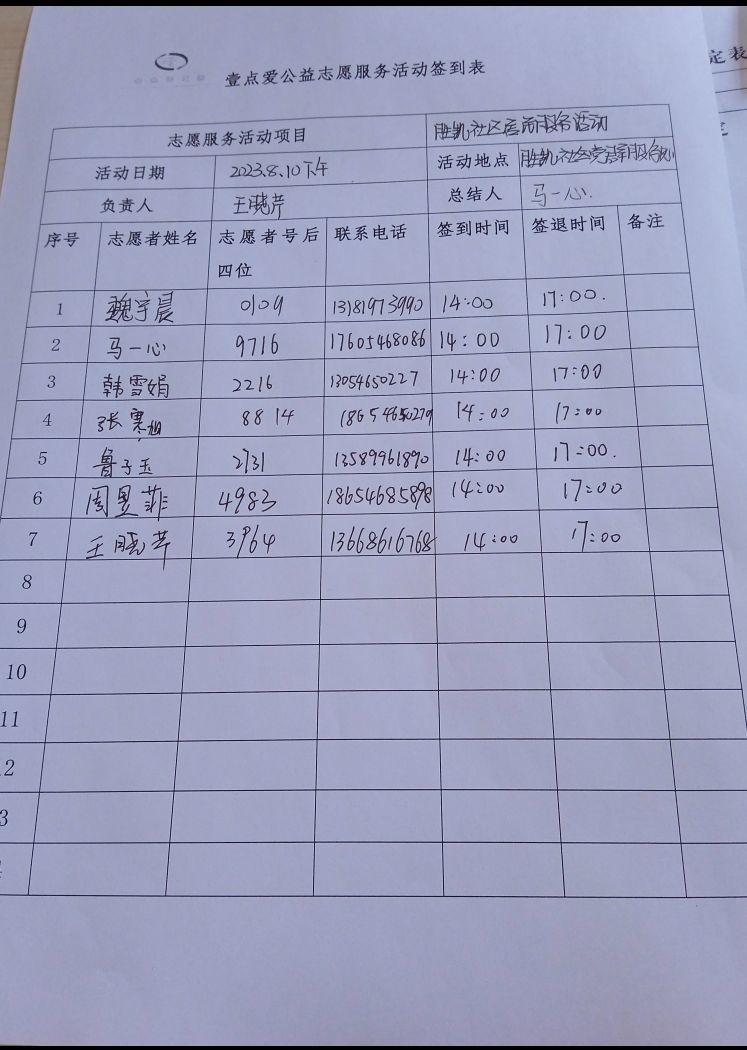 壹点爱公益志愿服务活动签到表
定表
志愿服务活动项目 胜凯社区 服务活动
活动日期 2023.8.10下午 活动地点 胜凯社区党群服务中心
负责人 王晓芹 总结人 马一心.
序号 志愿者姓名 志愿者号后 联系电话 签到时间 签退时间 备注
四位
1 魏宇晨 0109 13181973990 14:00 17:00.
2 马一心 9716 17605468086 14:00 17:00
3 韩雪娟 2216 13054650227 14:00 17:00
4 张寒旭 8814 18654650279 14:00 17:00
5 鲁子玉 2731 13589961890 14:00 17:00.
6 周昱菲 4983 18654685898 14:00 17:00
7 王晓芹 3964 13668616768 14:00 17:00
8
9
10
11
2
3